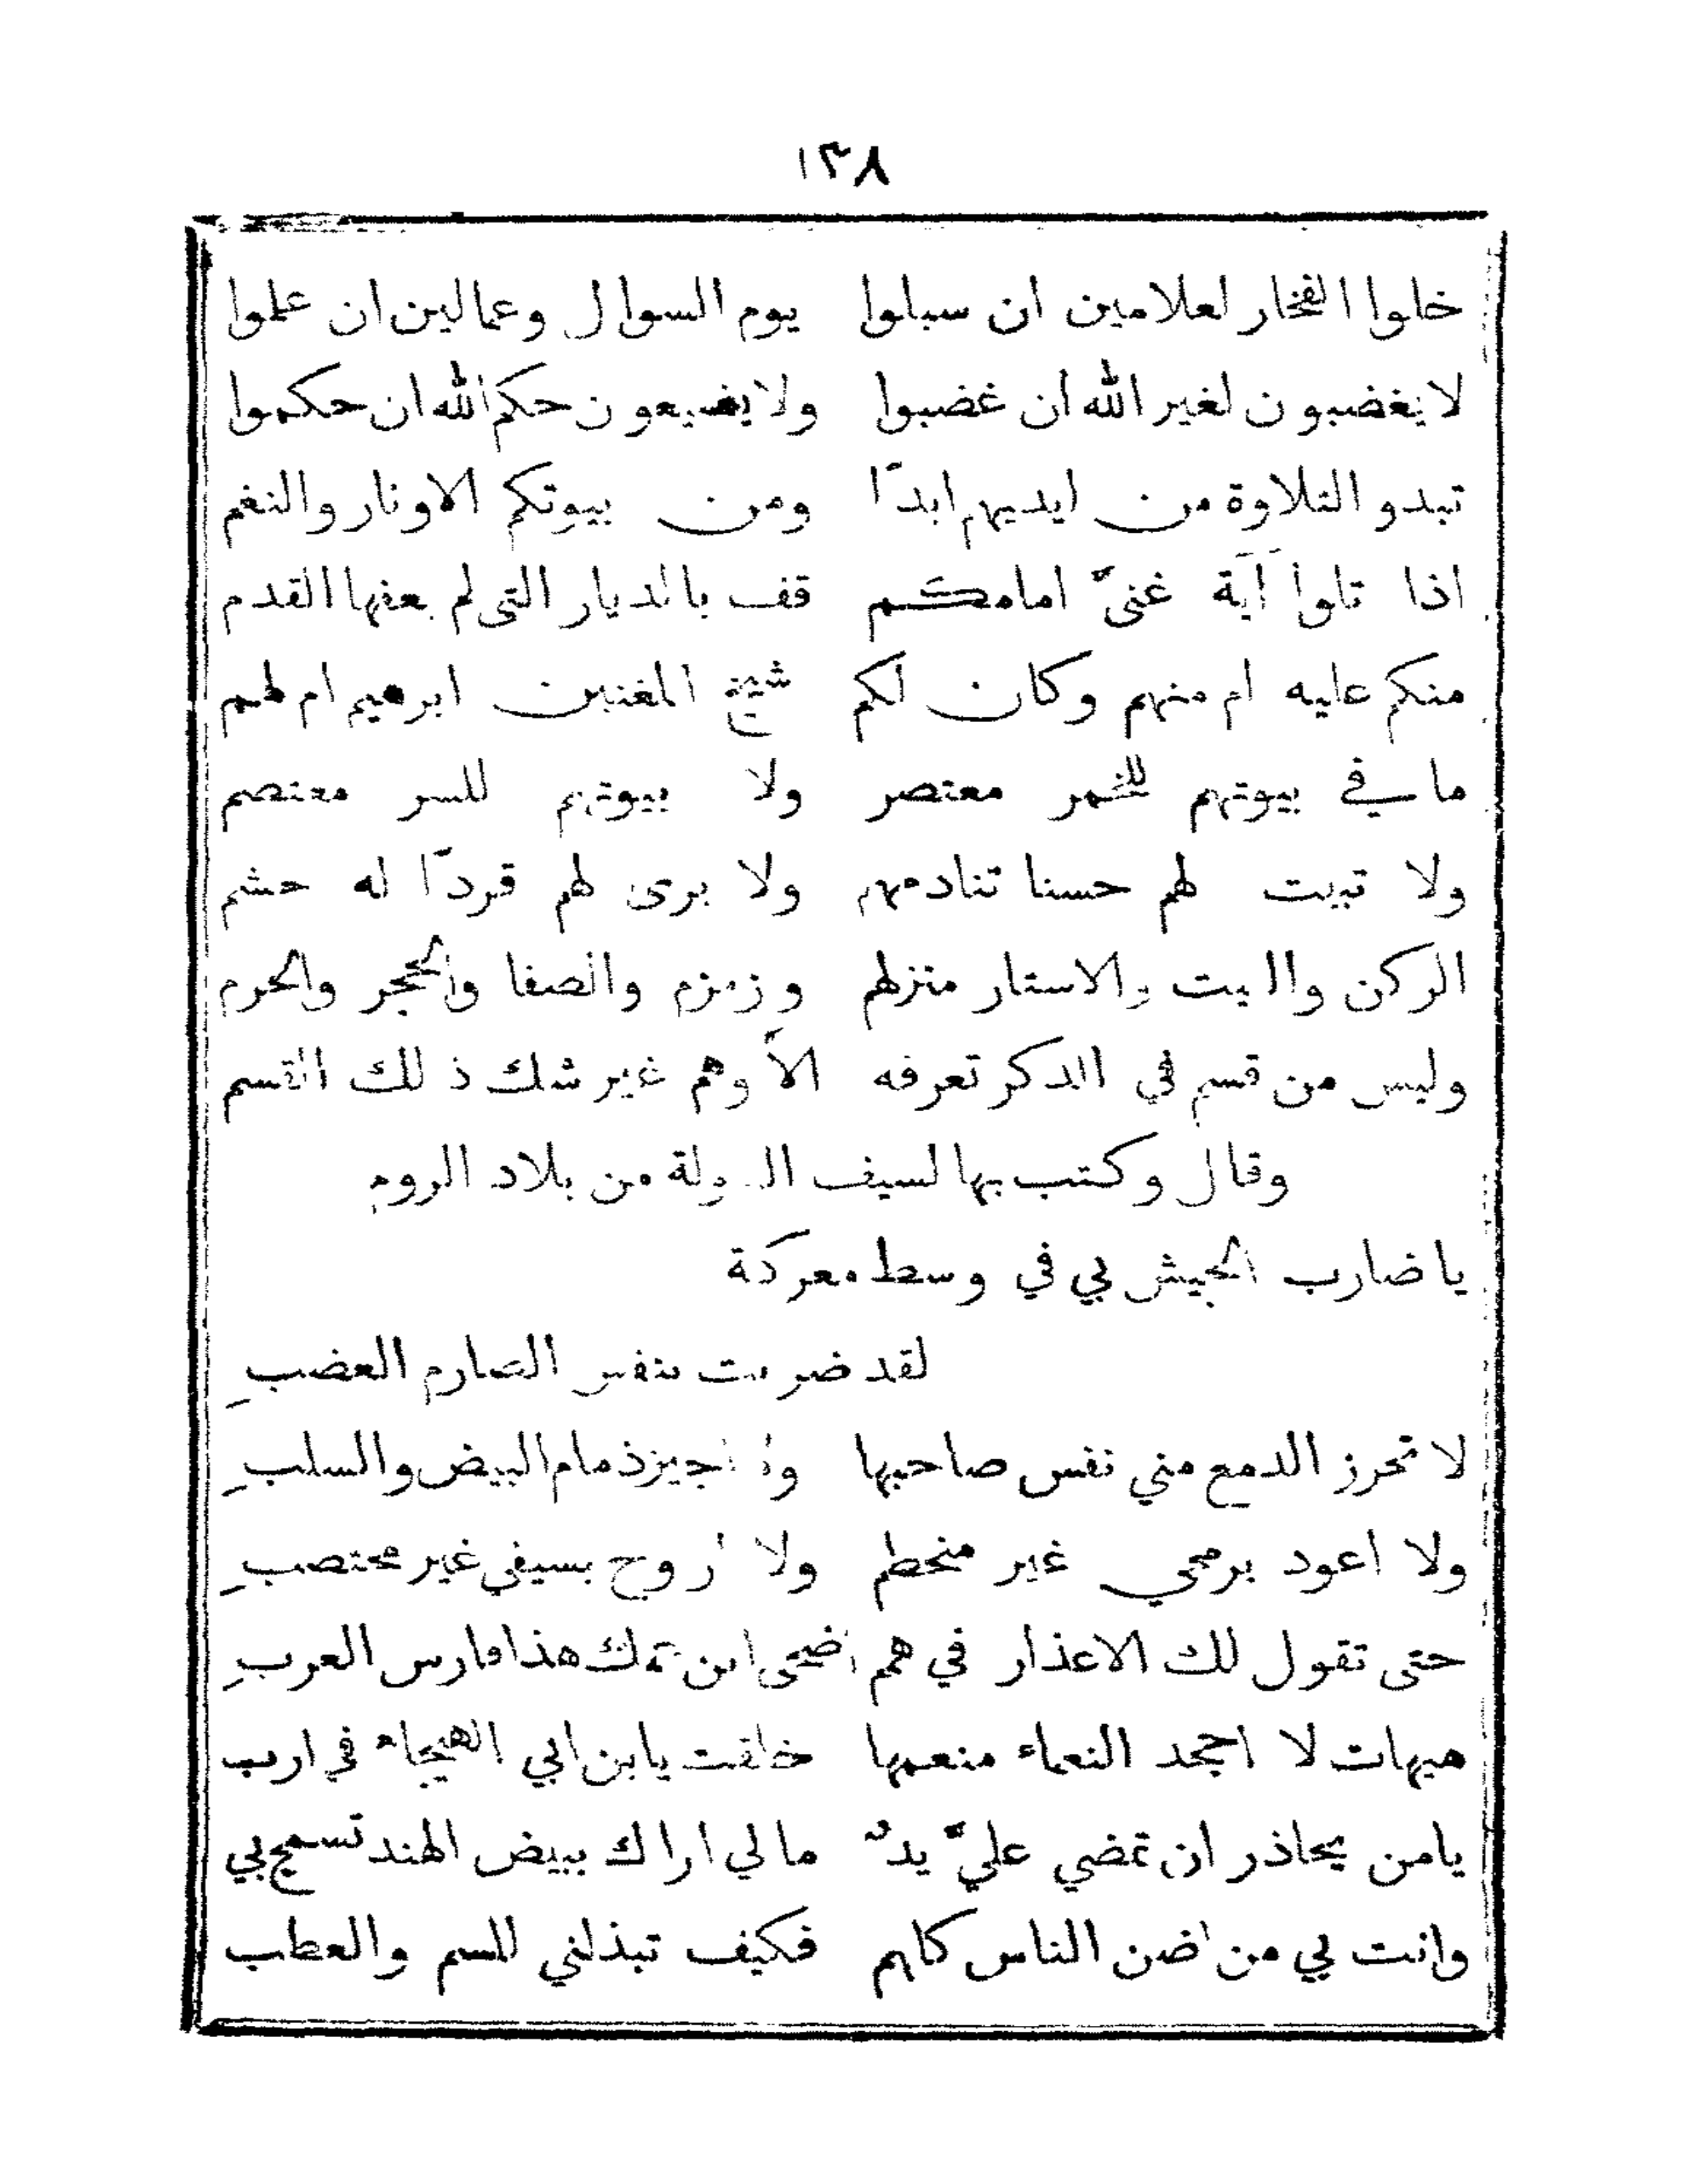 ١٣٨
خلوا الفخار لعلامين ان سبلوا يوم السوال وعمالين ان علموا
لا يغضبون لغير الله ان غضبوا ولا يضيعون حكم الله ان حكموا
تبدو التلاوة من ايديهم ابدًا ومن بيوتكم الاوتار والنغم
اذا تلوا آية غنىّ امامكم قف بالديار التى لم يعفها القدم
منكم عليه ام منهم وكان لكم شيخ المغنين ابرهيم ام لهم
ما في بيوتهم للخمر معتصر ولا بيوتهم للسر معتصم
ولا تبيت لهم حسنا تنادمهم ولا يرى لهم قردًا له حشم
الركن والبيت والاستار منزلهم وزمزم والصفا والحجر والحرم
وليس من قسم في الذكر تعرفه الاّ وهم غير شك ذلك القسم
وقال وكتب بها لسيف الدولة من بلاد الروم
يا ضارب الجيش بي في وسط معركة
لقد ضربت بنفس الصارم العضبِ
لا تحرز الدمع مني نفس صاحبها ولا اجيز ذمام البيض والسلبِ
ولا اعود برمحي غير منحطم ولا اروح بسيفي غير مختصبِ
حتى تقول لك الاعذار في همم اضحى ابن عمك هذا فارس العربِ
هيهات لا اجحد النعماء منعمها خلقت يابن ابي الهيجاء في ارب
يا من يحاذر ان تمضي عليّ يدٌ ما لي اراك ببيض الهند تسمح بي
وانت بي من اضن الناس كلهم فكيف تبذلني للسم والعطب